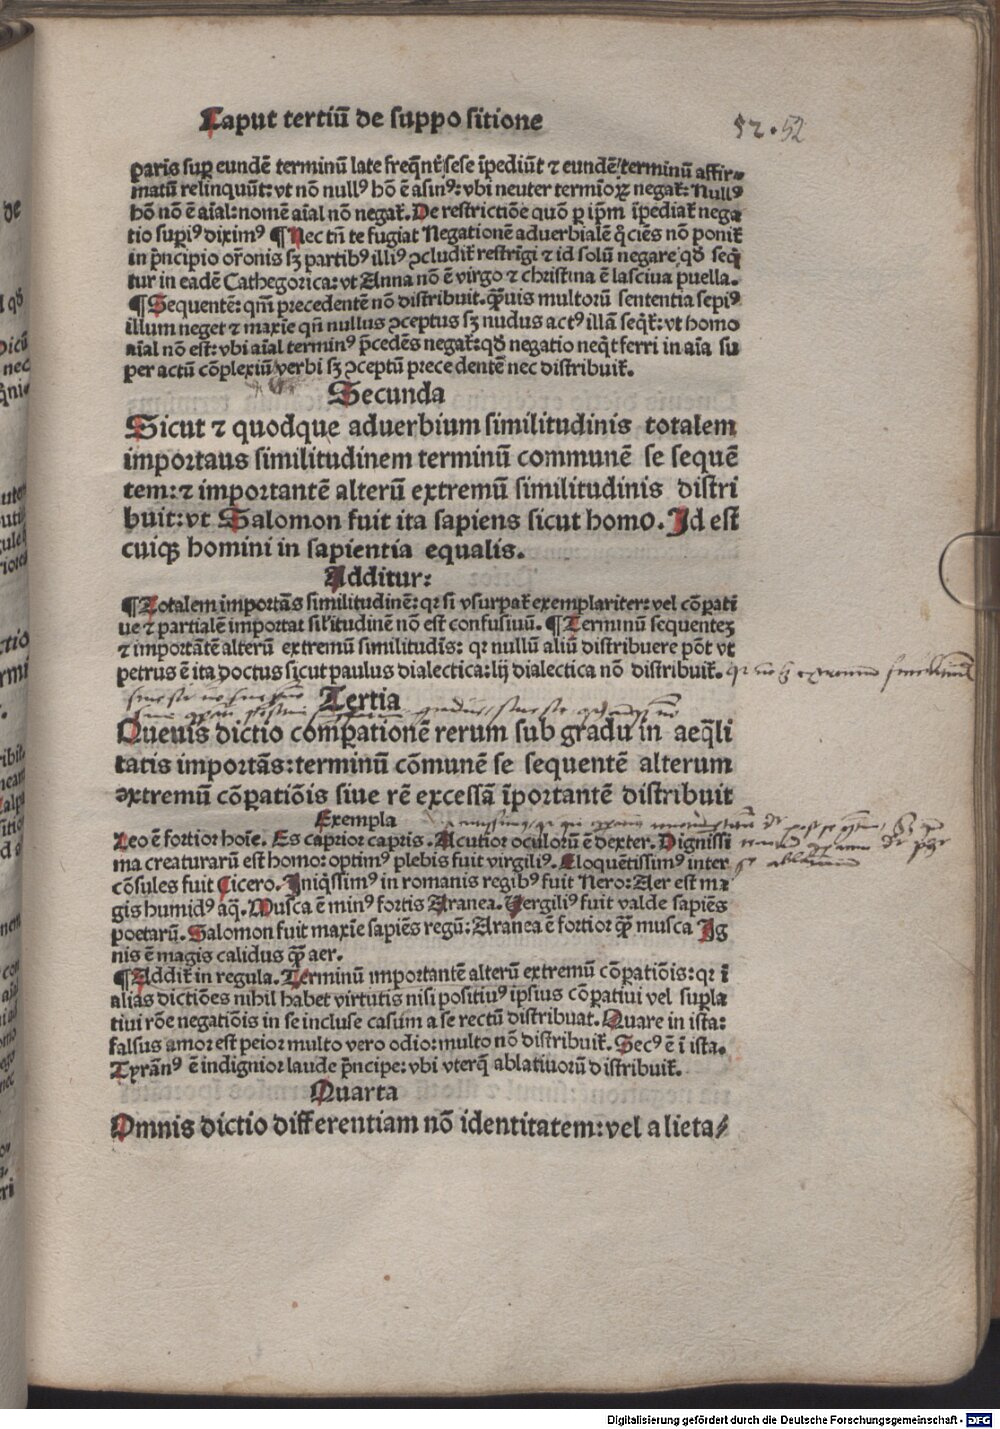 Caput tertiū de suppositione
52. 52
paris sup eundē terminū late freq̄nt sese īpediūt ⁊ eundē terminū affir⸗
matū relinquūt: vt nō nullꝰ hō ē asinꝰ: vbi neuter termioꝝ negat̄: Nullꝰ
hō nō ē aīal: nomē aīal nō negat̄. De restrictiōe quō ꝑ ip̄m īpediat̄ nega
tio supiꝰ diximꝰ ¶ Nec tn̄ te fugiat Negationē adverbialē q̄ciēs nō ponit̄
in pͥncipio or̄onis sꝫ partibꝰ illiꝰ ↄcludit̄ restrīgi ⁊ id solū negare qđ seq̄
tur in eadē Cathegorica: vt Anna nō ē virgo ⁊ christina ē lasciua puella.
¶ Sequentē: qm̄ precedentē nō distribuit. q̄uis multorū sententia sepiꝰ
illum neget ⁊ maxīe qn̄ nullus ↄceptus sꝫ nudus actꝰ illā seq̄t̄: vt homo
aīal nō est: vbi aīal terminꝰ p̄cedēs negat̄: qđ negatio neq̄t ferri in aīa su
per actū cōplexiū verbi sꝫ ↄceptū precedentē nec distribuit̄.
Secunda
Sicut ⁊ quodque aduerbium similitudinis totalem
importaus similitudinem terminū communē se sequē
tem: ⁊ importantē alterū extremū similitudinis distri
buit: vt Salomon fuit ita sapiens sicut homo. Id est
cuiqꝫ homini in sapientia equalis.
Additur:
¶ Totalem importās similitudinē: qꝛ si vsurpat̄ exemplariter: vel cōpati
ue ⁊ partialē importat sil̄itudinē nō est confusiuū. ¶ Terminū sequentez
⁊ importātē alterū extremū similitudīs: qꝛ nullū aliū distribuere pōt vt
petrus ē ita doctus sicut paulus dialectica: lꝫ dialectica nō distribuit̄.
Tertia
Queuis dictio compationē rerum sub gradu in aeq̄li
tatis importās: terminū cōmunē se sequentē alterum
extremū cōpatiōis siue rē excessā īportantē distribuit
Exempla
Leo ē fortior hoīe. Es caprior capris. Acutior oculorū ē dexter. Dignissi
ma creaturarū est homo: optimꝰ plebis fuit virgiliꝰ. Eloquētissimꝰ inter
cōsules fuit Cicero. Iniq̄ssimꝰ in romanis regibꝰ fuit Nero: Aer est ma
gis humidꝰ aq̄. Musca ē minꝰ fortis Aranea. Vergiliꝰ fuit valde sapiēs
poetarū. Salomon fuit maxīe sapiēs regū: Aranea ē fortior q̄ musca Ig
nis ē magis calidus q̄ aer.
¶ Addit̄ in regula. Terminū importantē alterū extremū cōpatiōis: qꝛ ī
alias dictiōes nihil habet virtutis nisi positiuꝰ ipsius cōpatiui vel supla
tiui rōe negatiōis in se incluse casum a se rectū distribuat. Quare in ista:
falsus amor est peior multo vero odio: multo nō distribuit̄. Secꝰ ē ī ista.
Tyrānꝰ ē indignior laude pͥncipe: vbi vterq̄ ablatiuorū distribuit̄.
Quarta
Omnis dictio differentiam nō identitatem: vel alieta⸗
Digitalisierung gefördert durch die Deutsche Forschungsgemeinschaft - DFG